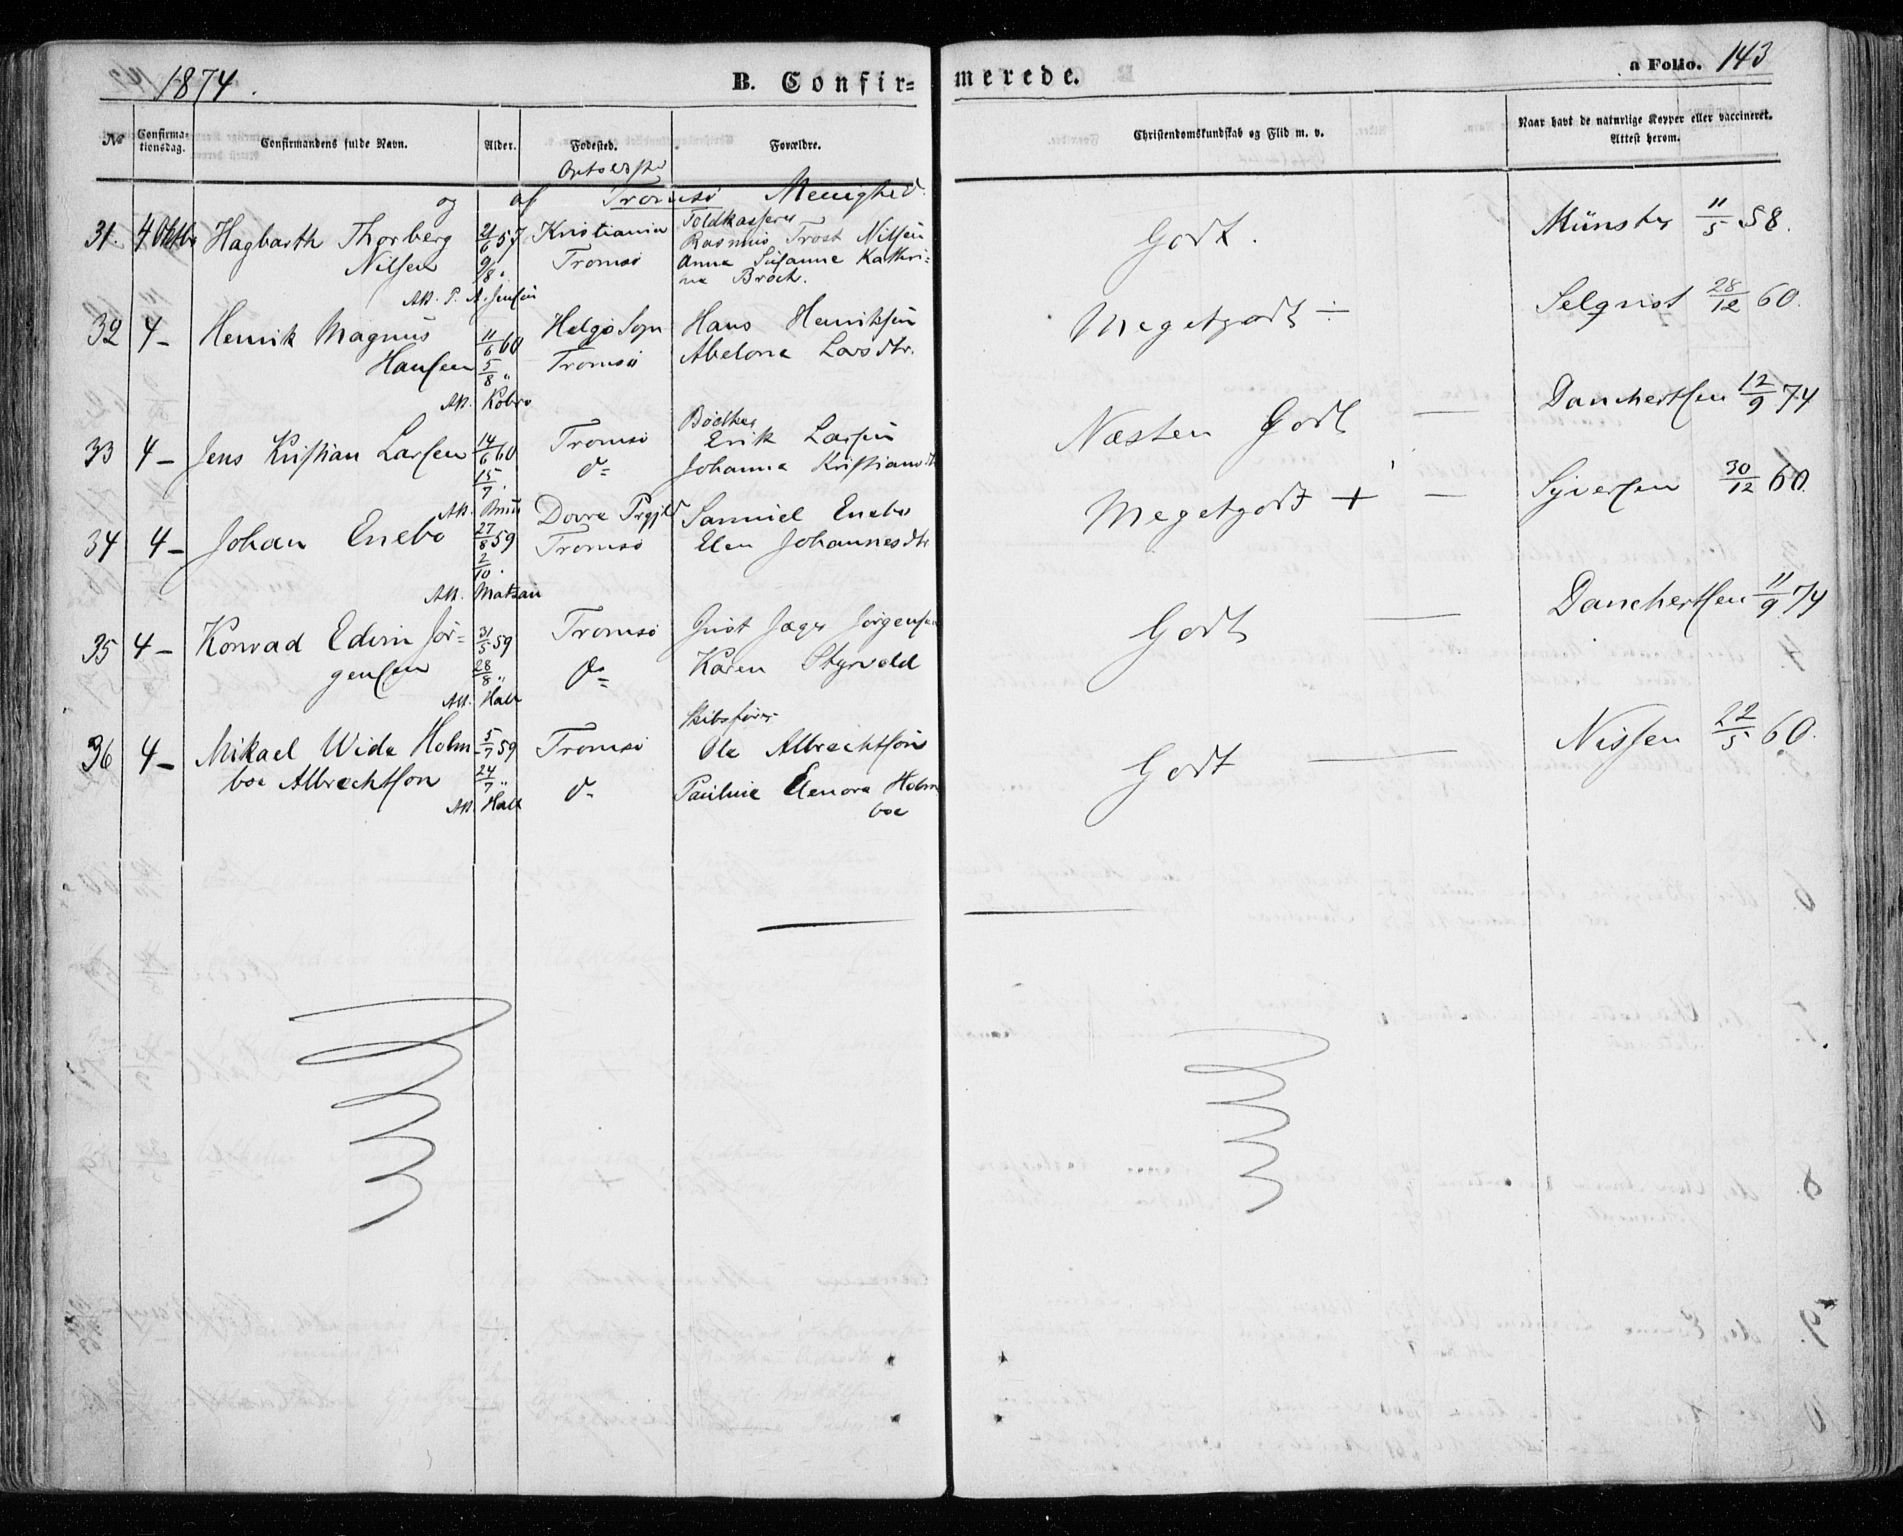 1874.
B. Confir-
merede.
a Folio. 143
No
Confirma-
tionsdag.
Confirmandens fulde Navn.
Alder.
Fødested.
Forældre.
Christendomskundskab og Flid m. v.
Naar havt de naturlige Kopper eller vaccineret.
Attest herom.
og af Tromsø Menighed.
31. 4 Oktbr Hagbarth Thorberg 21/6 57 Kristiania Toldkasserer
Rasmus Trost Nilsen Godt. Münster 11/5 58.
Nilsen 9/8. Tromsø Anna Susanne Kathri-
ne Brock.
Att. P. A. Jensen
32 4 - Henrik Magnus 11/6 60 Helgø Sogn Hans Henriksen Megetgodt ÷ Selqvist 28/12 60.
Hansen 5/8 " Tromsø Abelone Larsdtr.
Att. Kobro
33 4 - Jens Kristian Larsen 14/6 60 Tromsø Bødker
Erik Larsen Næsten Godt — Danchertsen 12/9 74
15/7. d= Johanna Kristiansdtr
Att. Bruu
34 4 - Johan Enebo 27/8 59 Dovre Prgjld Samuel Enebo Megetgodt + — Syversen 30/12 60.
2/10. Tromsø Elen Johannesdtr
Att. Matzau
35 4 - Konrad Edvin Jør- 31/5 59 Tromsø Just Jæger Jørgensen Godt — Danchertsen 11/9 74
gensen 28/8 " d= Karen Styrvold
Att. Hall
36 4 - Mikael Wide Holm- 5/7 59 Tromsø Skibsfører
Ole Albrechtson Godt — Nissen 22/5 60.
boe Albrechtson 24/7 " d- Pauline Elenora Holm
boe
Att. Hall